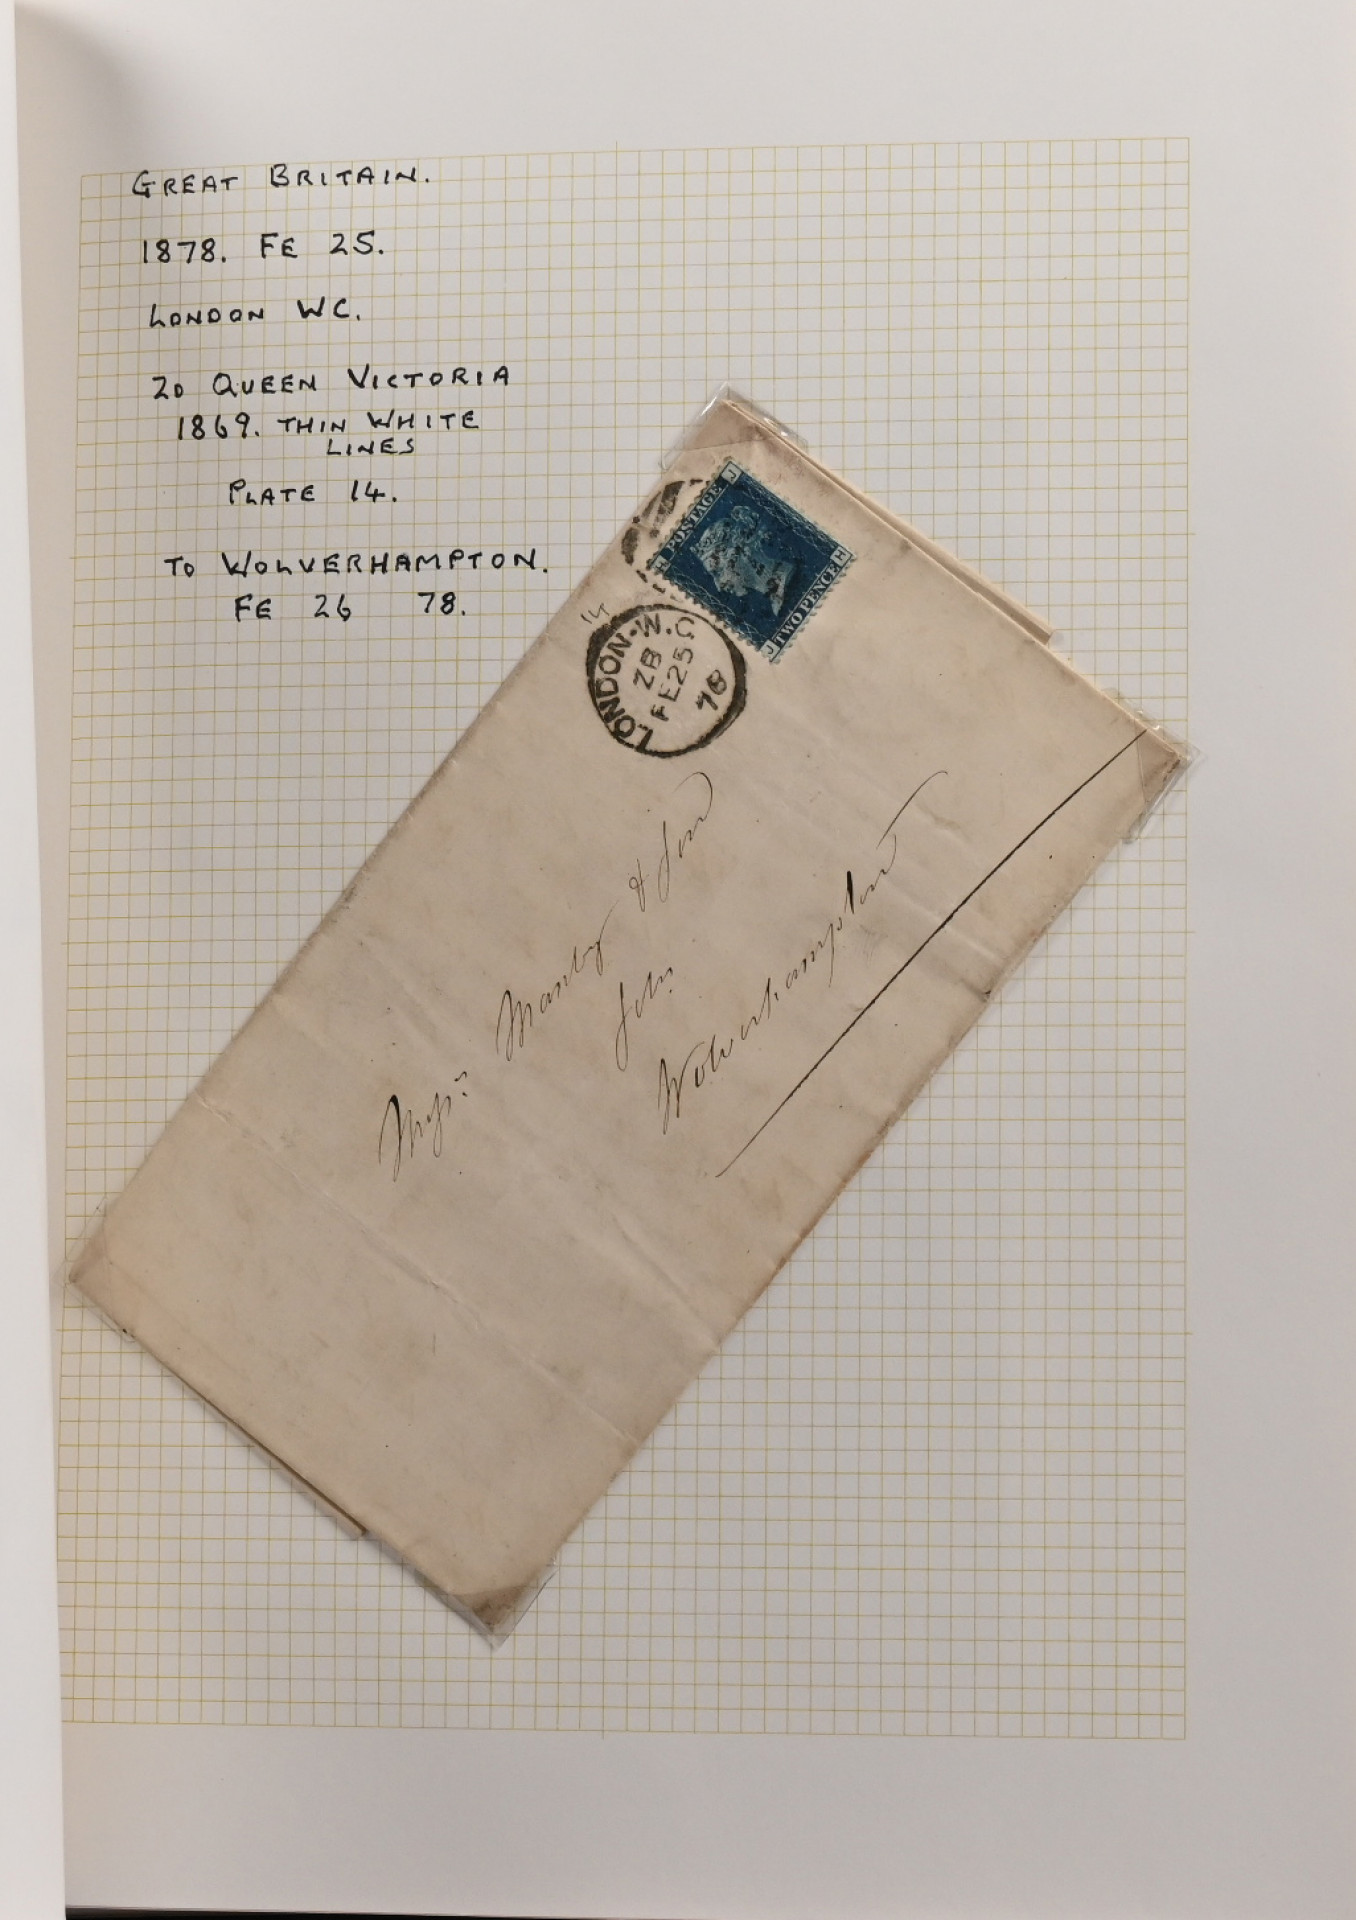 GREAT BRITAIN.
1878. FE 25.
LONDON WC.
2D QUEEN VICTORIA
1869. THIN WHITE
LINES
PLATE 14.
TO WOLVERHAMPTON.
FE 26 78.
J
POSTAGE
H H
TWO PENCE
J
14
LONDON-W.C
ZB
FE25
78
Messrs Manby & Son
Solrs
Wolverhampton